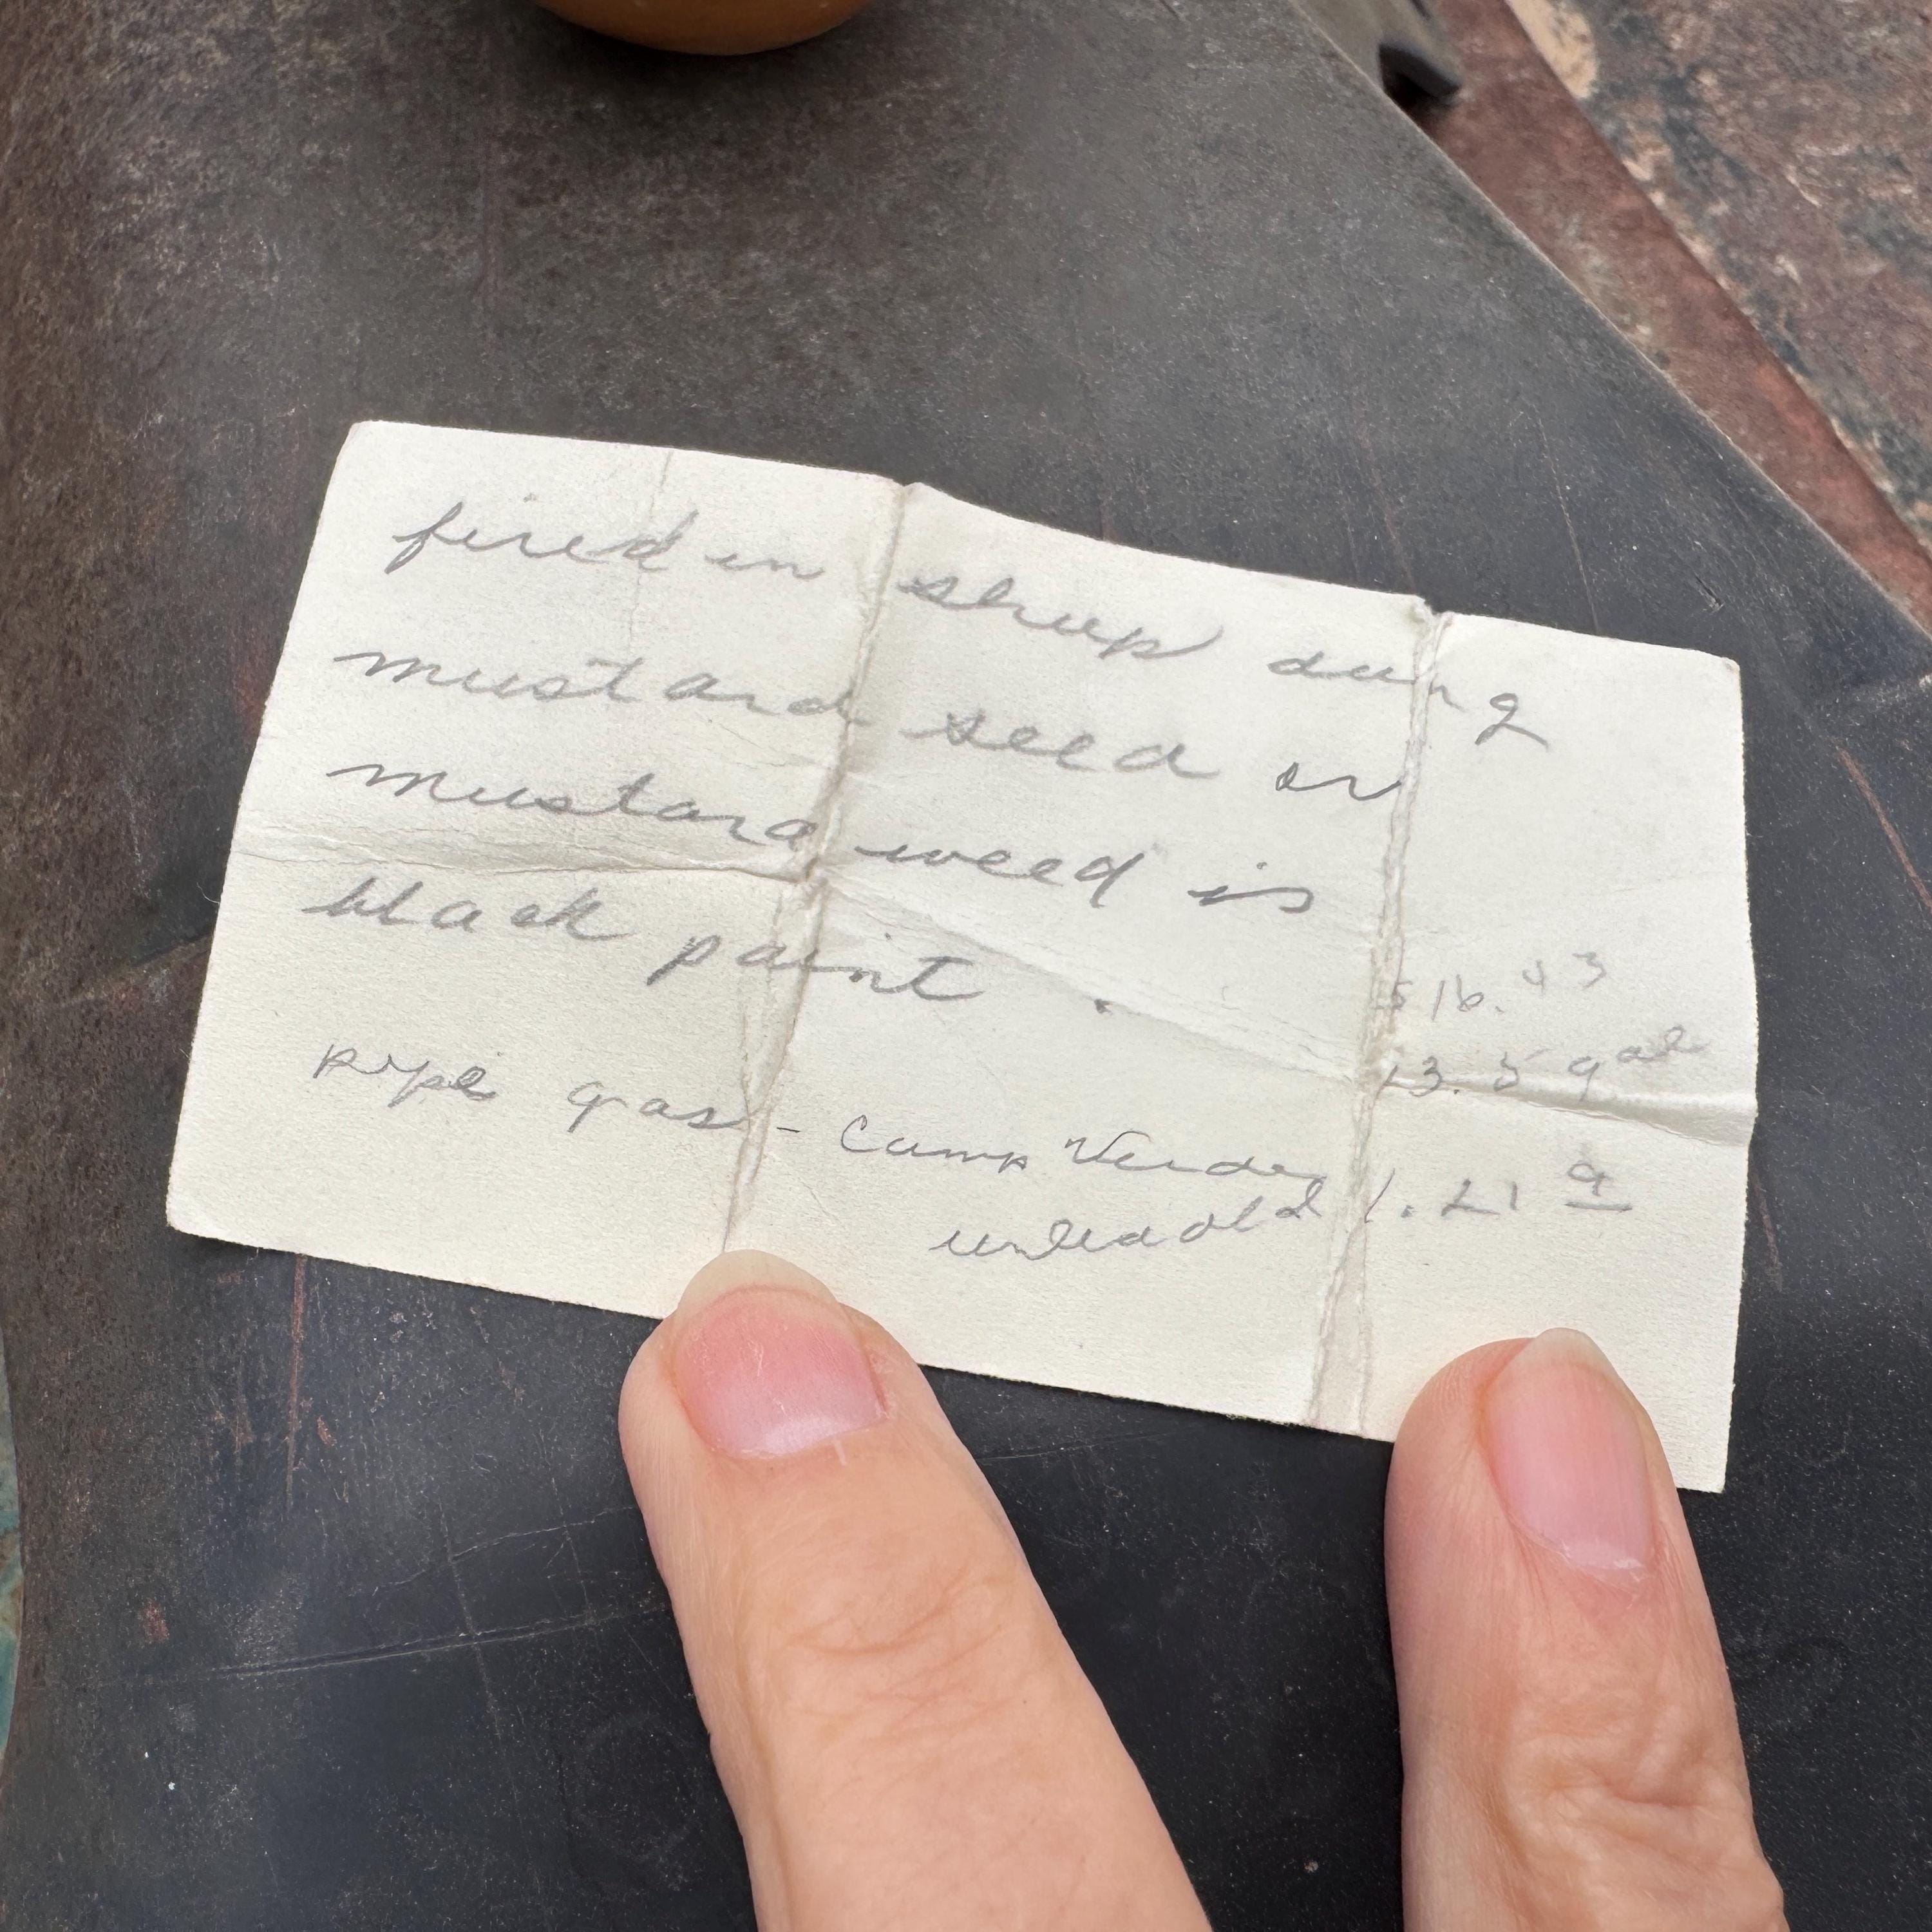 fired in sheep dung
mustard seed or
mustard weed is
black paint.
516.43
13.5 gal
gas - Camp Verde
unleaded 1.21 9